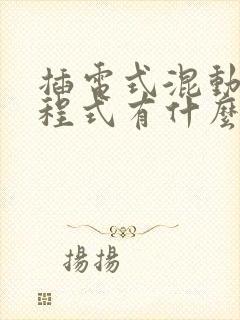 插電式混動
程式有什麼
揚揚